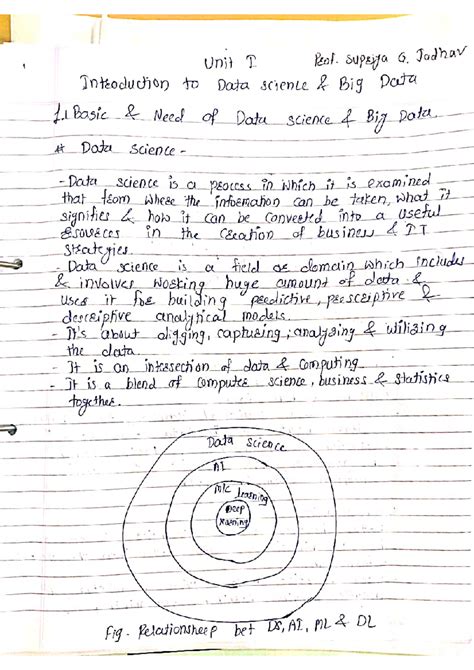 Unit I
Prof. Supriya G. Jadhav
1
Introduction to Data science & Big Data
1.1 Basic & Need of Data science & Big Data.
# Data Science -
- Data science is a process in which it is examined
that from where the information can be taken, what it
signifies & how it can be converted into a useful
resources in the creation of business & IT
strategies.
- Data science is a field or domain which includes
& involves working huge amount of data &
uses it for building predictive, prescriptive &
descriptive analytical models.
- It's about digging, capturing, analyzing & utilizing
the data.
- It is an intersection of data & computing.
- It is a blend of computer science, business & statistics
together.
Data science
AI
M/c learning
Deep
learning
Fig. Relationsheep bet DS, AI, ML & DL